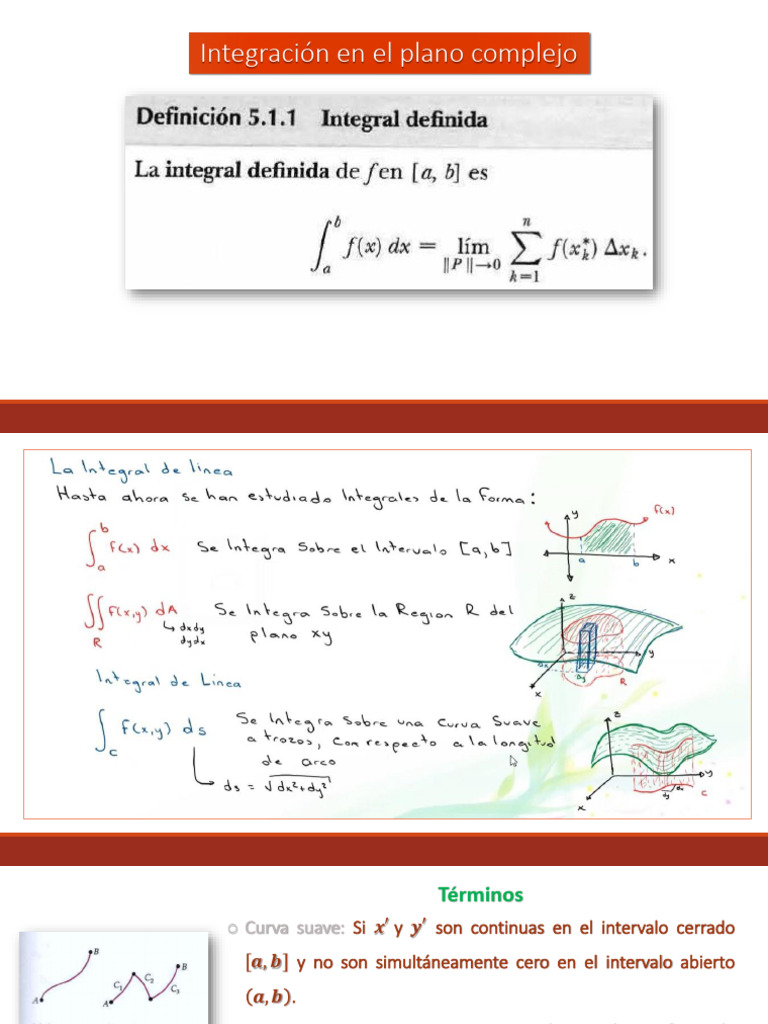 Integración en el plano complejo
Definición 5.1.1 Integral definida
La integral definida de f en [a, b] es
∫_a^b f(x) dx = lím_{‖P‖→0} ∑_{k=1}^n f(x_k^*) Δx_k.
La Integral de linea
Hasta ahora se han estudiado Integrales de la Forma:
∫_a^b f(x) dx Se Integra Sobre el Intervalo [a,b]
y f(x) a b x
∬_R f(x,y) dA Se Integra Sobre la Region R del
↳ dxdy
dydx
plano xy
z y x R
Integral de Linea
∫_C f(x,y) ds Se Integra Sobre una Curva Suave
a trozos, Con respecto a la longitud
de arco
ds = √(dx²+dy²)
z y x C
Términos
Curva suave: Si x′ y y′ son continuas en el intervalo cerrado
[a, b] y no son simultáneamente cero en el intervalo abierto
(a, b).
A B A C₁ C₂ C₃ B